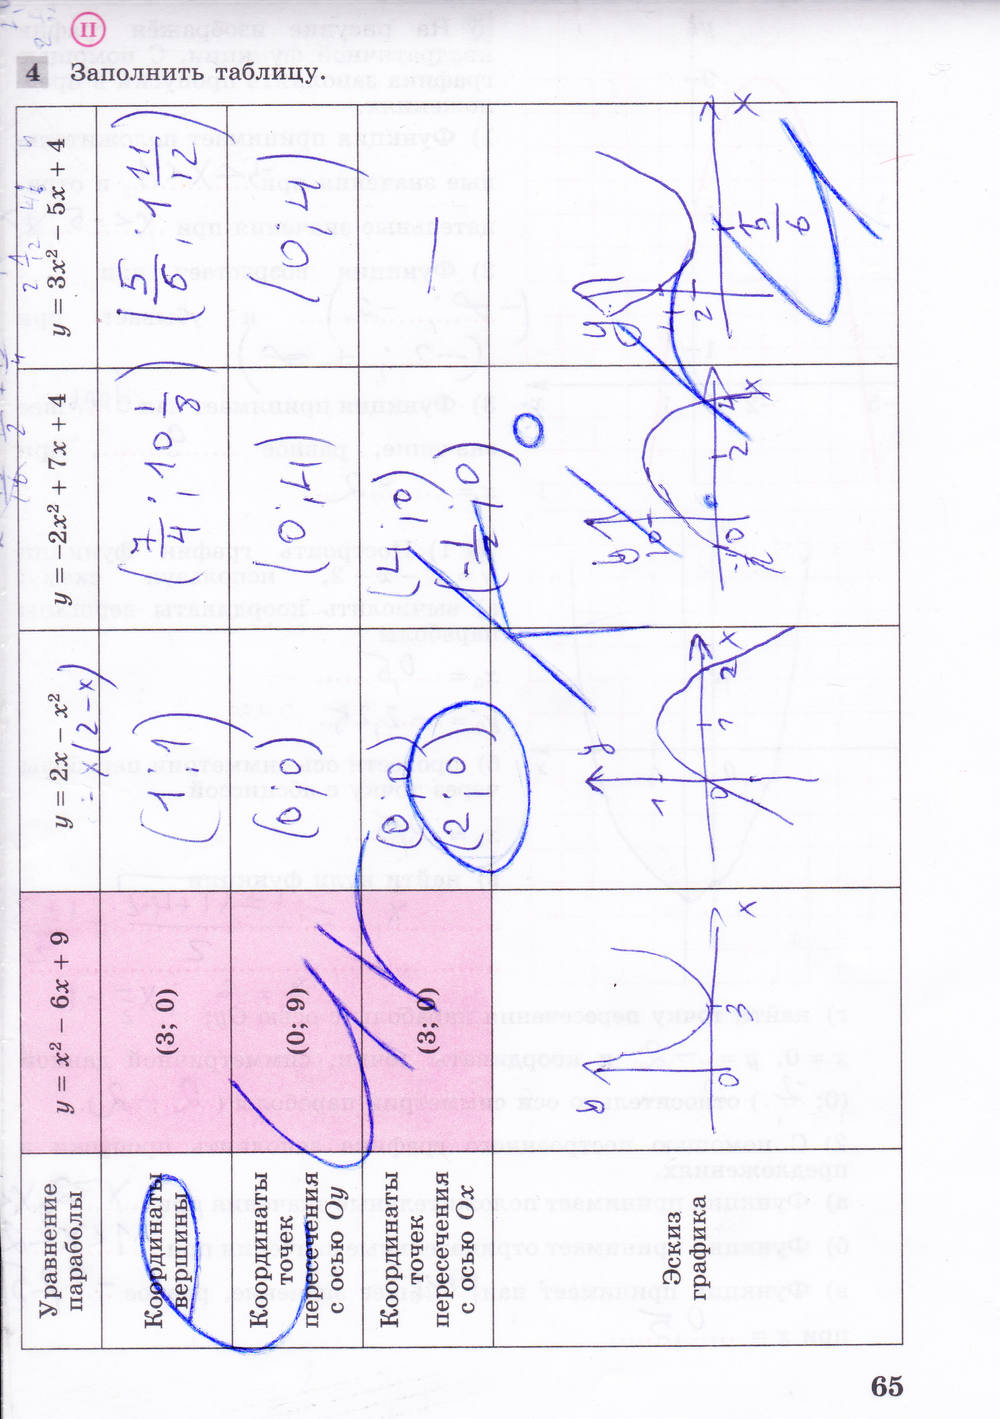 II
4 Заполнить таблицу.
Уравнение параболы
y = x² − 6x + 9
y = 2x − x²
(2−x)
y = 2x² + 7x + 4
y = 3x² − 5x + 4
Координаты вершины
(3; 0)
(1; 1)
(7/4; 10 1/8)
(5/6; 1 11/12)
Координаты точек пересечения с осью Oy
(0; 9)
(0; 0)
(0; 4)
(0; 4)
Координаты точек пересечения с осью Ox
(3; 0)
(0; 0)
(2; 0)
(4; 0)
(−1/2; 0)
—
Эскиз графика
y
0
3
x
y
1
0
1
2
x
y
10
0
2
4
x
y
4
2
5/6
x
65